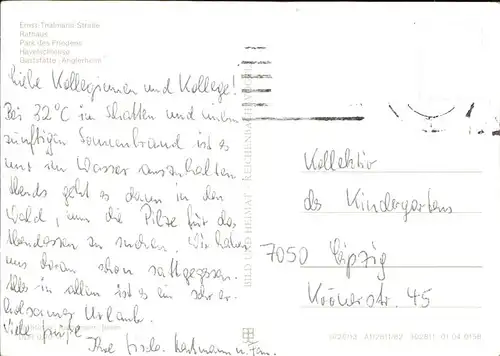 Ernst-Thälmann-Straße
Rathaus
Park des Friedens
Havelschleuse
Gaststätte "Anglerheim"
Liebe Kolleginnen und Kollege!
Bei 32°C im Schatten und einem
zünftigen Sonnenbrand ist es
nur im Wasser auszuhalten.
Abends geht es dann in den
Wald, um die Pilze für das
Abendessen zu suchen. Wir haben
uns daran schon sattgegessen.
Alles in allem ist es ein sehr er-
holsamer Urlaub.
Viele Grüße
Ihre Hartmann u. Fam.
BILD UND HEIMAT REICHENBACH
Kollektiv
des Kindergartens
7050 Leipzig
Körnerstr. 45
A1/2611/82 01 04 0158